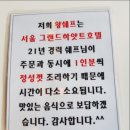 저희 황쉐프는
서울 그랜드하얏트호텔
21년 경력 쉐프님이
주문과 동시에 1인분씩
정성껏 조리하기 때문에
시간이 다소 소요됩니다.
맛있는 음식으로 보답하겠
습니다. 감사합니다.^^